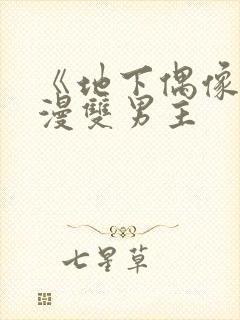 《地下偶像
漫雙男主
七星草